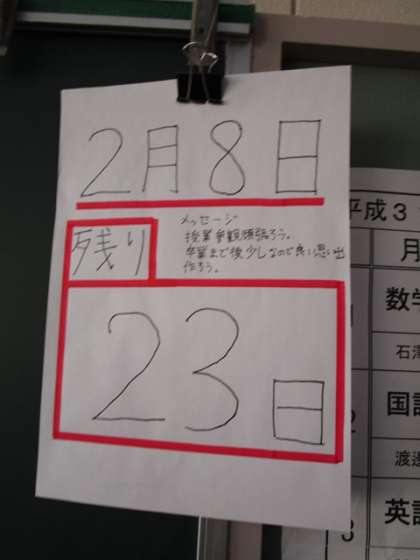 2月8日
残り
メッセージ
授業参観頑張ろう。
卒業まで後少しなので良い思い出
作ろう。
23日
平成3
月
1
数学
石津
2
国語
渡邉
3
英語